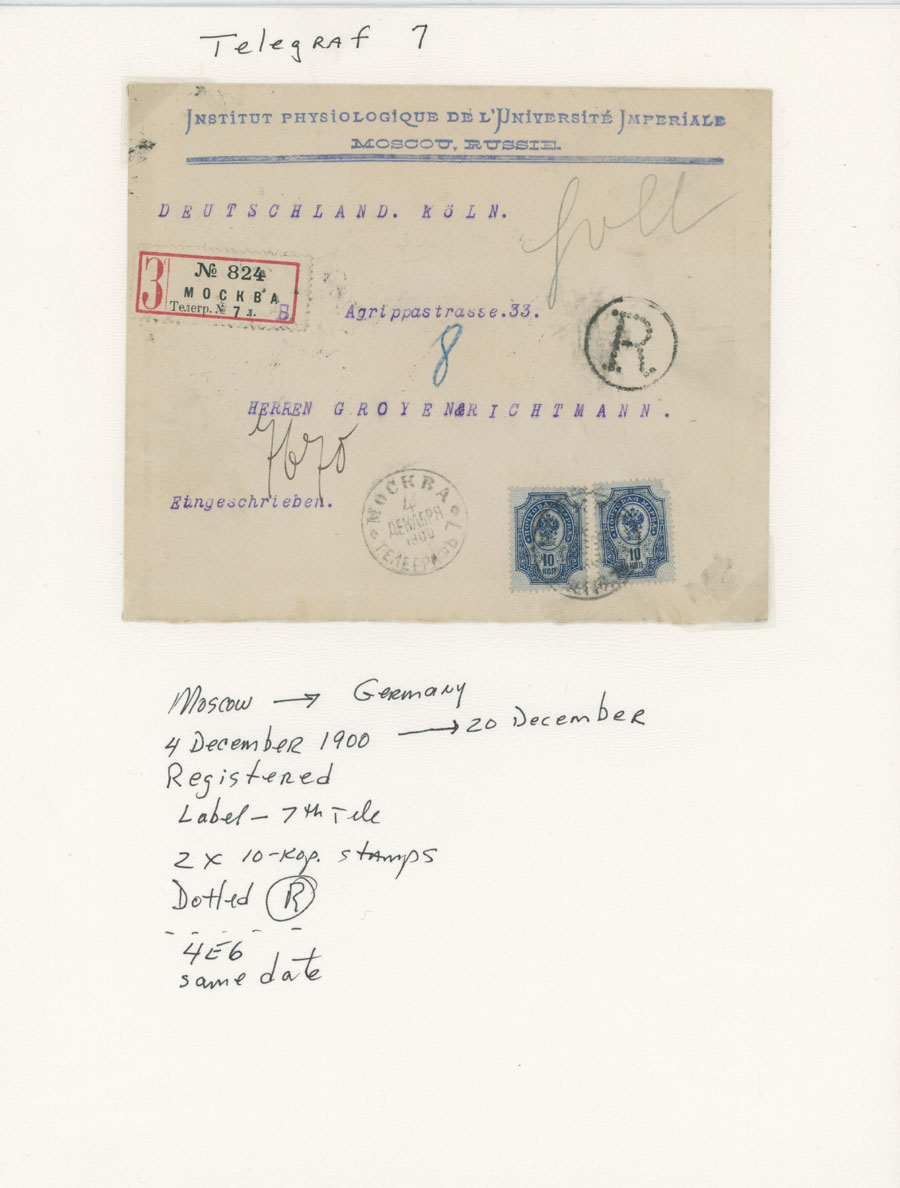 Telegraf 7
INSTITUT PHYSIOLOGIQUE DE L'UNIVERSITÉ IMPERIALE
MOSCOU, RUSSIE.
DEUTSCHLAND. KÖLN.
З
№ 824
МОСКВА
Телегр. № 7 л. B
Agrippastrasse.33.
R
8
HERREN GROYEN&RICHTMANN.
7670
Eingeschrieben.
МОСКВА
4
ДЕКАБРЯ
1900
ТЕЛЕГРАФЪ 7
10 КОП
10 КОП
Moscow → Germany
4 December 1900 → 20 December
Registered
Label - 7th Tele
2 x 10-kop. stamps
Dotted R
4E6
same date